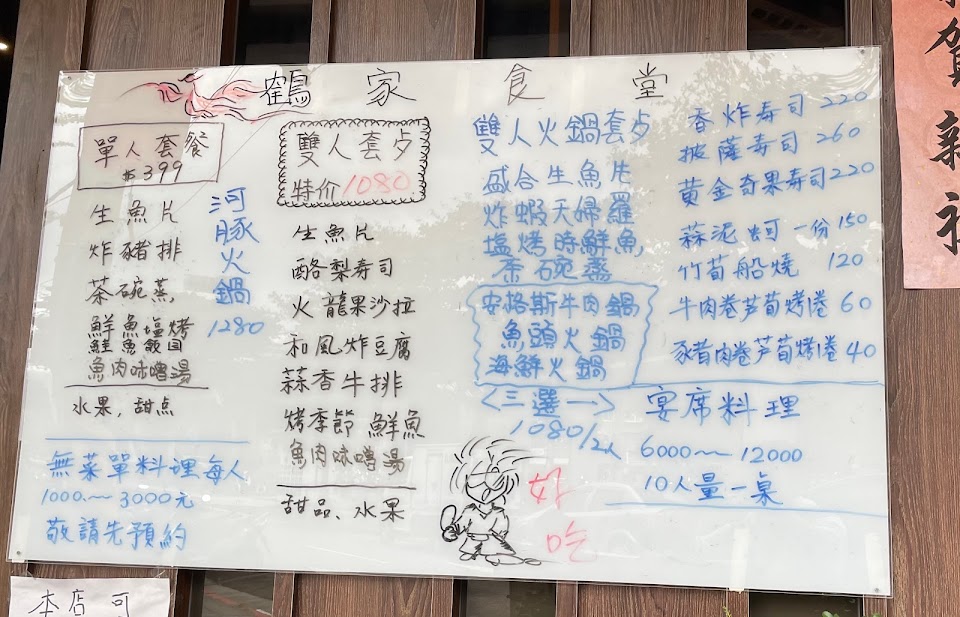 鶴家食堂
單人套餐
$399
生魚片
炸豬排
茶碗蒸,
鮮魚塩烤
鮭魚飯団
魚肉味噌湯
水果,甜点
河豚火鍋
1280
無菜單料理每人
1000~3000元
敬請先預約
雙人套歺
特价1080
生魚片
酪梨寿司
火龍果沙拉
和風炸豆腐
蒜香牛排
烤季節鮮魚
魚肉味噌湯
甜品、水果
雙人火鍋套歺
盛合生魚片
炸蝦天婦羅
塩烤時鮮魚,
茶碗蒸
安格斯牛肉鍋
魚頭火鍋
海鮮火鍋
<三選一>
1080/2人
好吃
香炸寿司 220
披薩寿司 260
黄金奇果寿司 220
蒜泥蚵一份 150
竹荀船燒 120
牛肉卷芦荀烤捲 60
豬肉卷芦荀烤捲 40
宴席料理
6000~12000
10人量一桌
賀新社
本店可